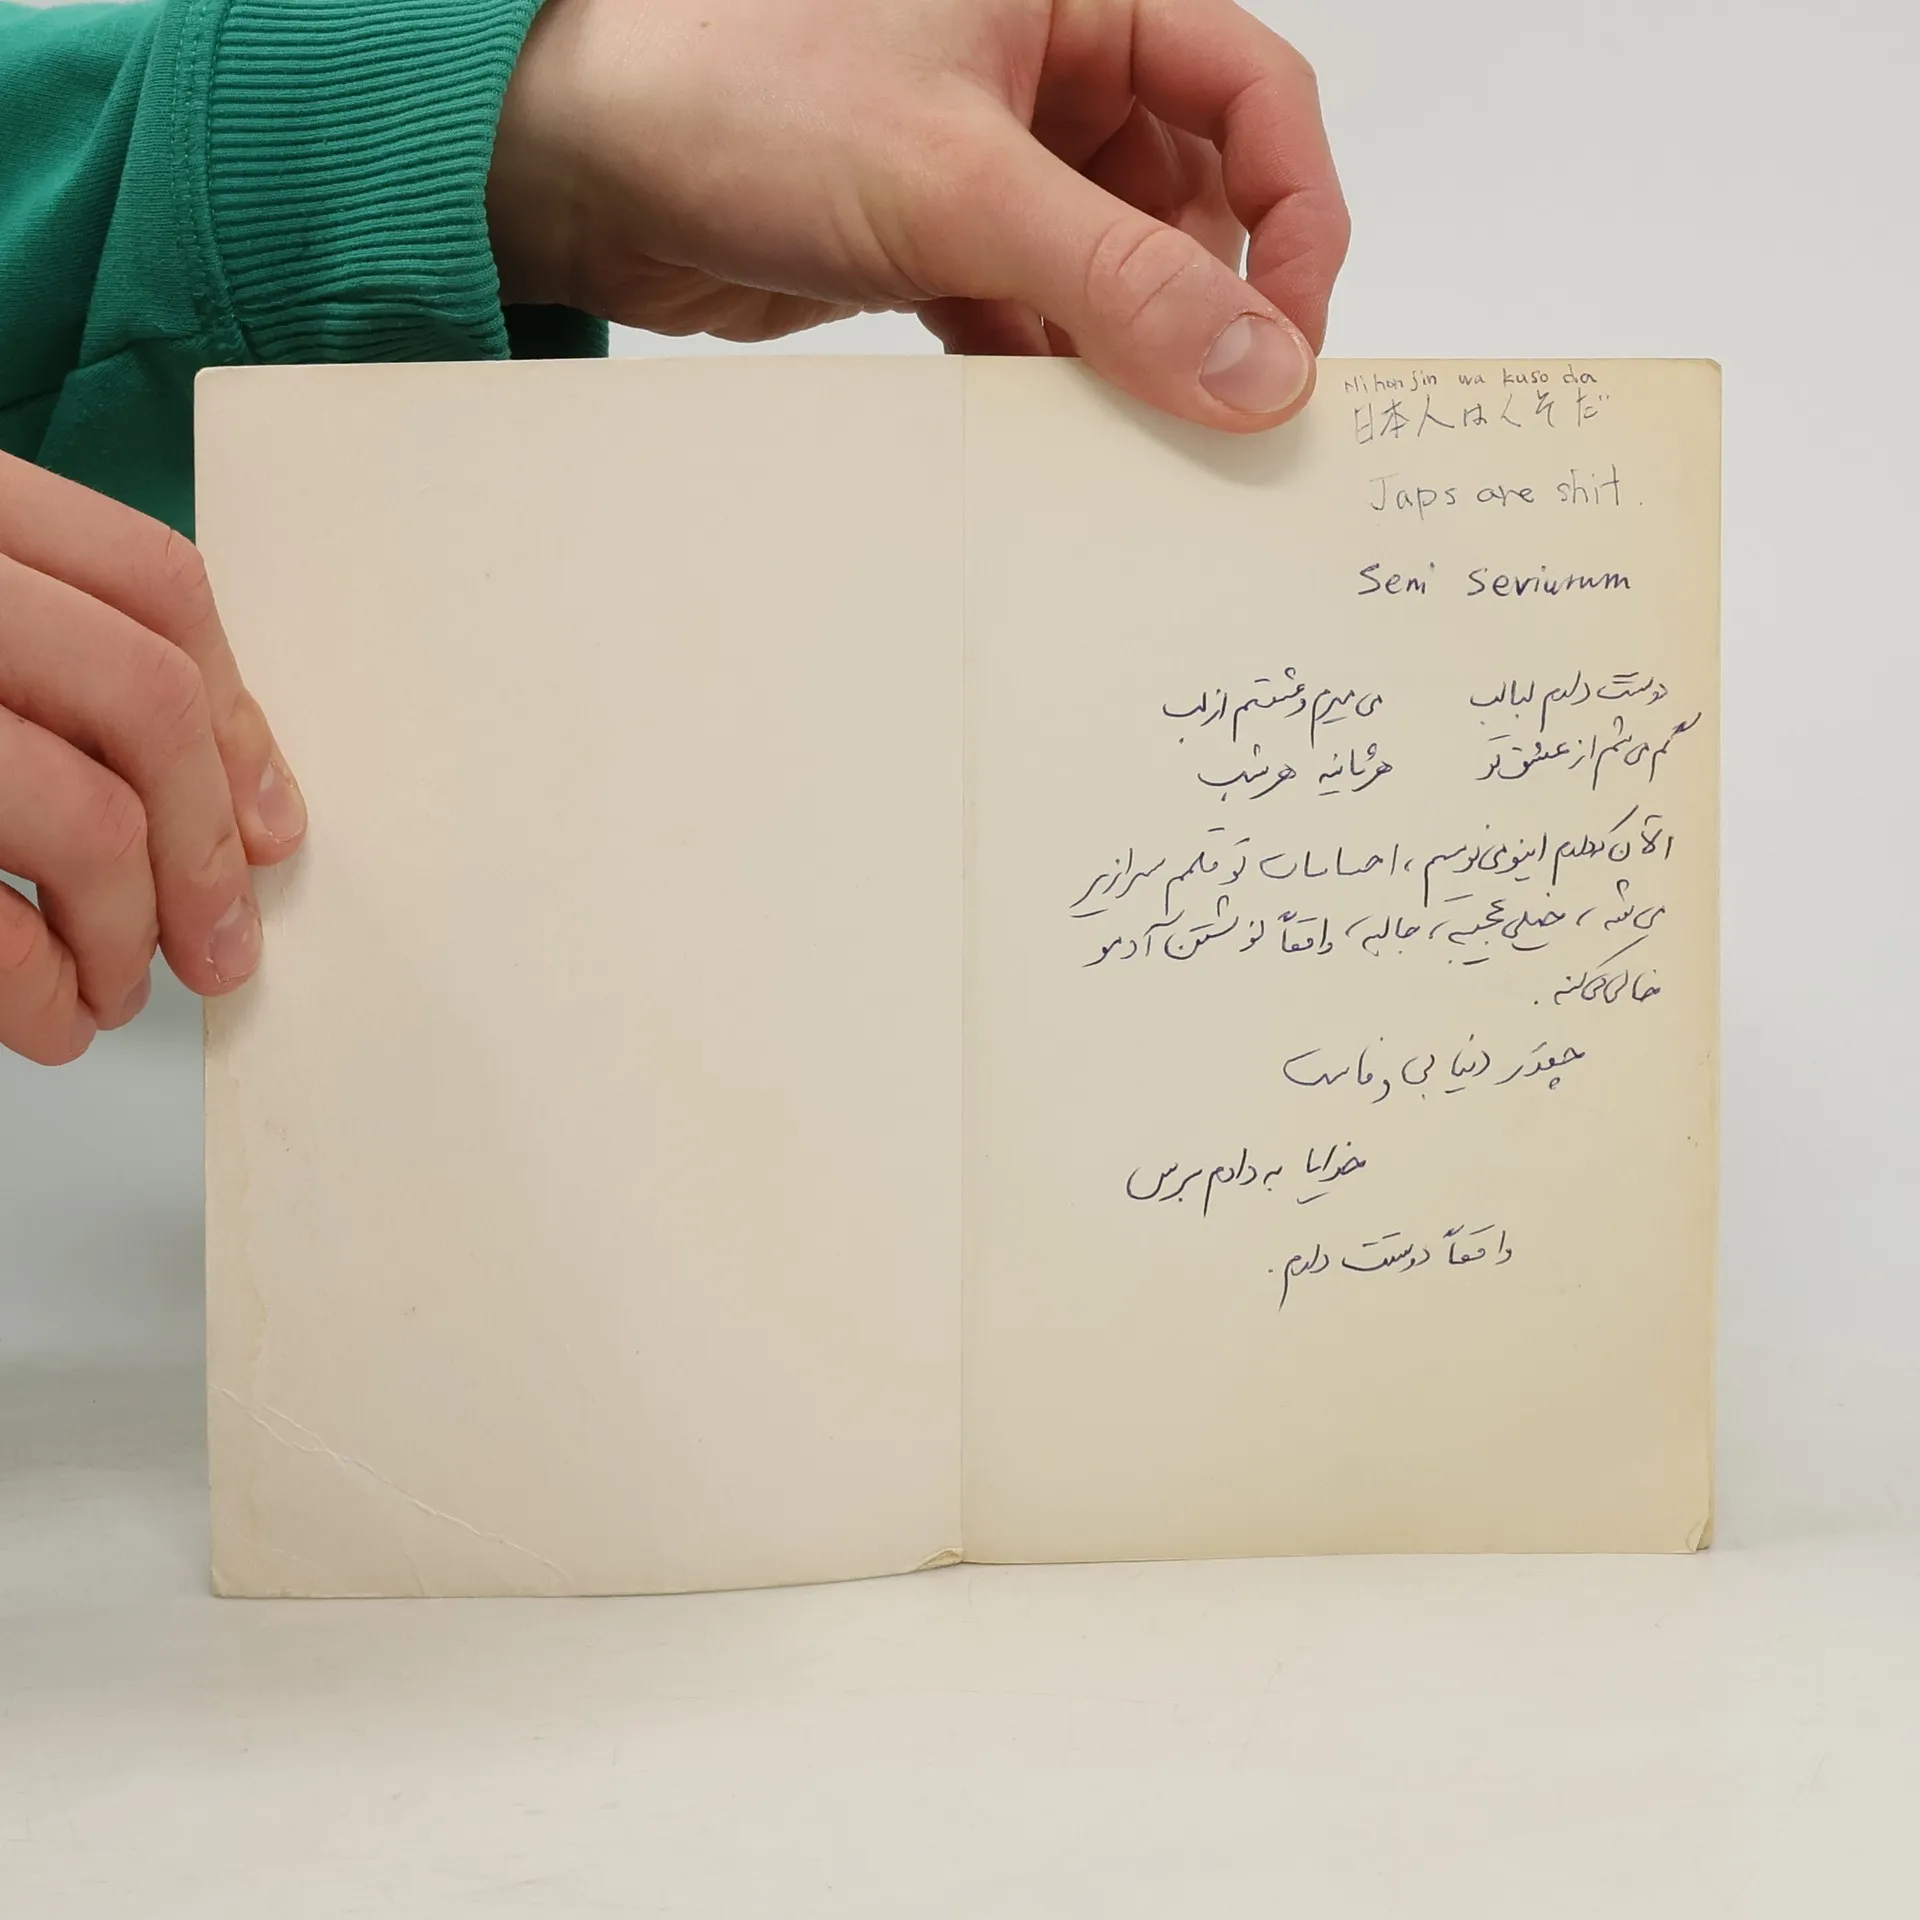 Nihonjin wa kuso da
日本人はくそだ
Japs are shit.
Seni seviurum
دوستت دارم لبالب می میرم و عشقتم از لب
گم می شم از عشق تو هر ثانیه هر شب
الآن که دارم اینو می نویسم، احساسات تو قلمم سرازیر
می شه، خیلی عجیبه، جالبه، واقعاً نوشتن آدمو
خالی می کنه.
چقدر دنیا بی وفاست
خدایا به دادم برس
واقعاً دوستت دارم.